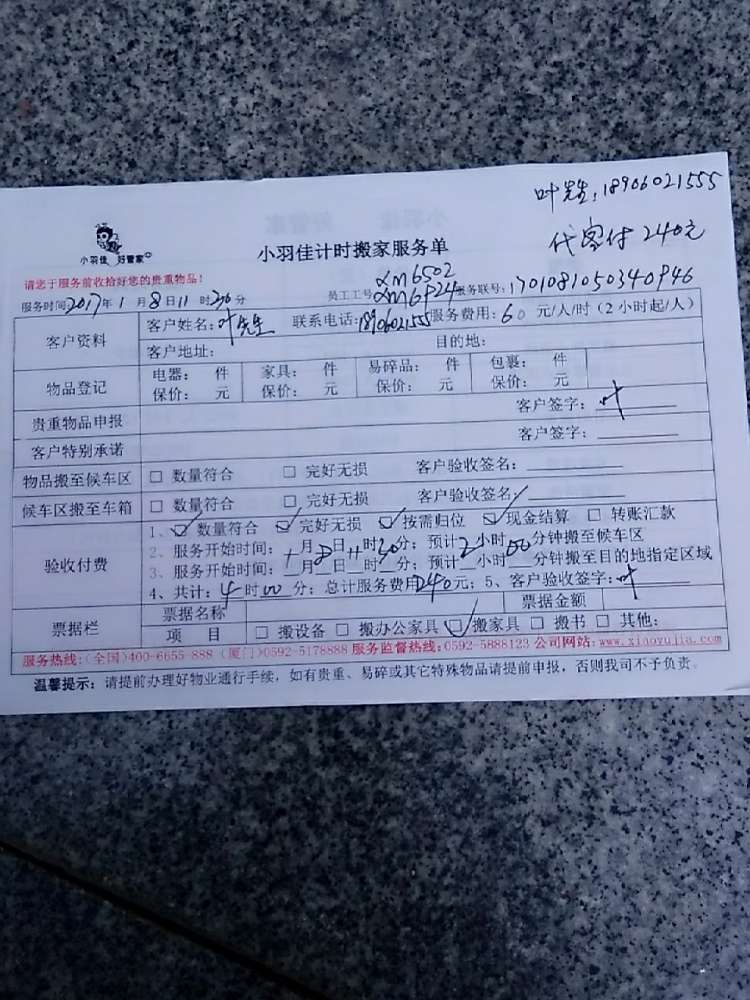 叶先生:18906021555
代客付 240元
小羽佳 好管家
小羽佳计时搬家服务单
请您于服务前收拾好您的贵重物品!
xm6502
服务时间2017年1月8日11时30分 员工工号 xm6924 服务联号:1701081050340946
客户资料 客户姓名:叶先生 联系电话:18906021555 服务费用:60 元/人/时(2小时起/人)
客户地址: 目的地:
物品登记 电器: 件 家具: 件 易碎品: 件 包裹: 件
保价: 元 保价: 元 保价: 元 保价: 元
贵重物品申报 客户签字:叶
客户特别承诺 客户签字:
物品搬至候车区 □ 数量符合 □ 完好无损 客户验收签名:
候车区搬至车箱 □ 数量符合 □ 完好无损 客户验收签名:
验收付费 1、☑ 数量符合 ☑ 完好无损 ☑ 按需归位 ☑ 现金结算 □ 转账汇款
2、服务开始时间:1月8日11时30分;预计2小时00分钟搬至候车区
3、服务开始时间:__月__日__时__分;预计__小时__分钟搬至目的地指定区域
4、共计:4时00分;总计服务费用240元;5、客户验收签字:叶
票据栏 票据名称 票据金额
项 目 □ 搬设备 □ 搬办公家具 ☑ 搬家具 □ 搬书 □ 其他:
服务热线:(全国)400-6655-888 (厦门)0592-5178888 服务监督热线:0592-5888123 公司网站:www.xiaoyujia.com
温馨提示:请提前办理好物业通行手续,如有贵重、易碎或其它特殊物品请提前申报,否则我司不予负责。